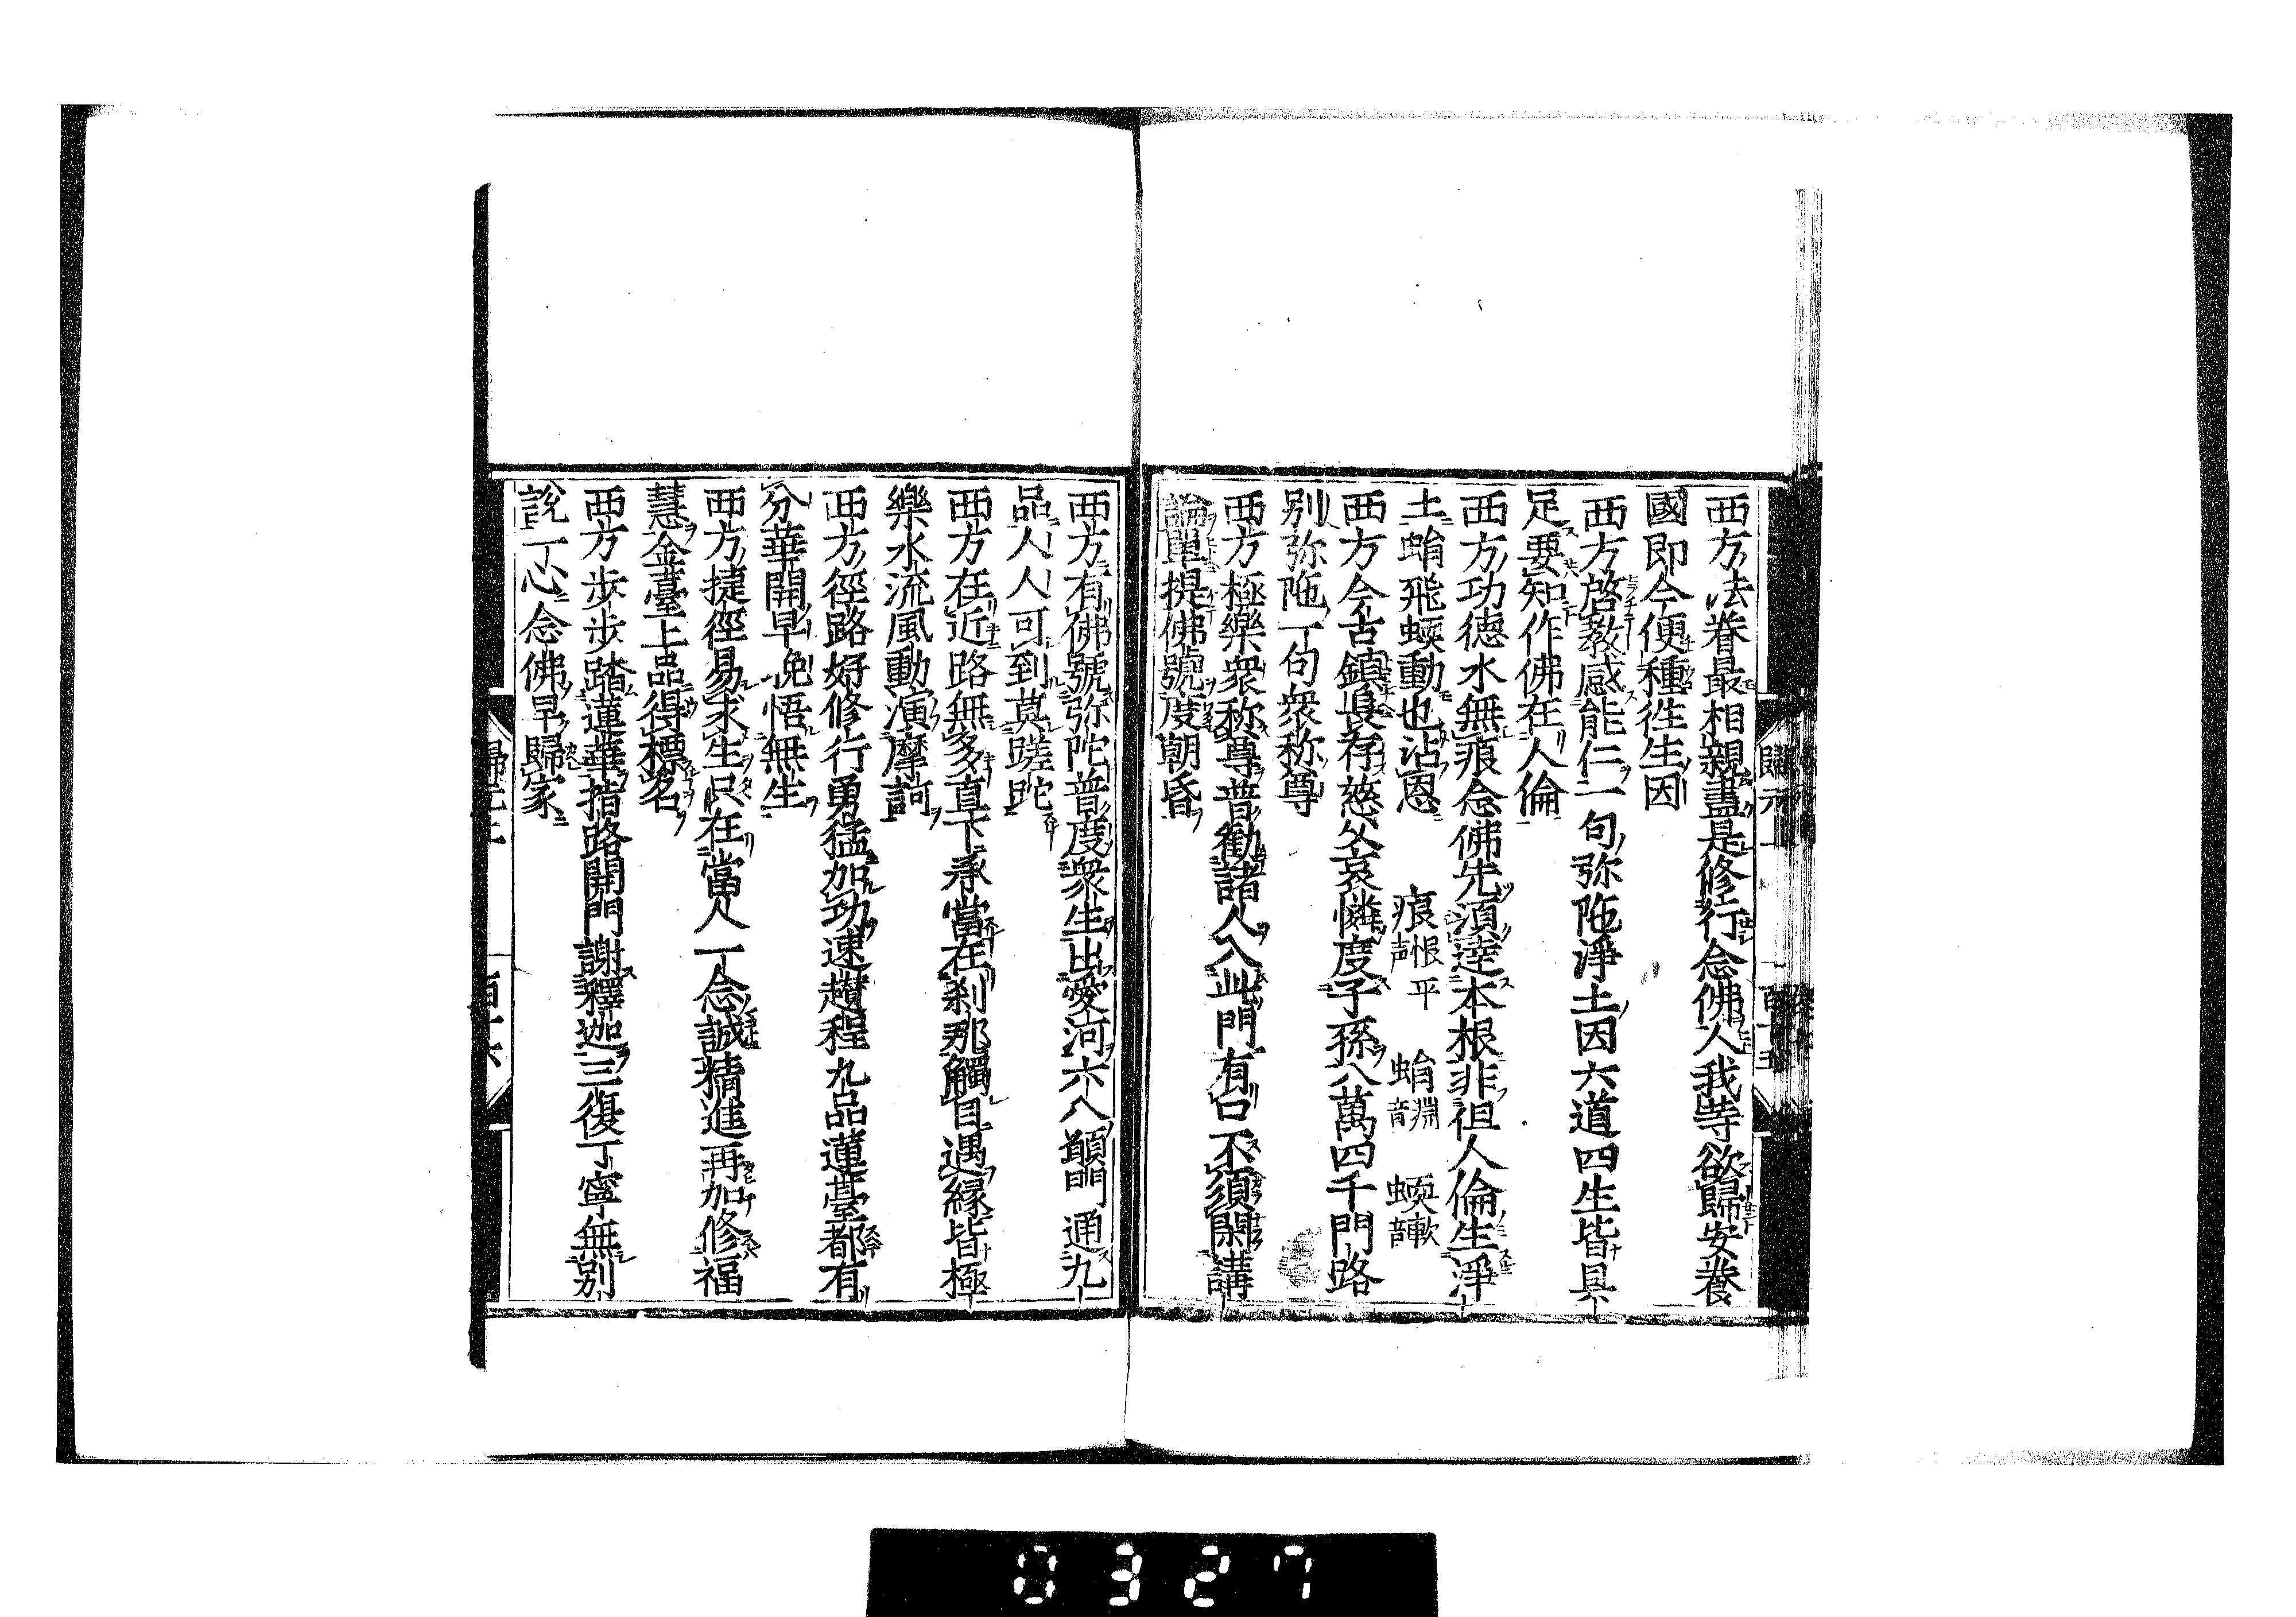 西方法眷最相親盡是修行念佛人我等欲歸安養
國即今便種徃生因
西方啓教感能仁一句弥陁淨土因六道四生皆具
足要知作佛在人倫
西方功德水無痕念佛先須達本根非徂人倫生淨
土蜎飛蝡動也沾恩 痕恨平声 蜎音淵 蝡音軟
西方今古鎮長存慈父哀憐度子孫八萬四千門路
别弥陁一句衆称尊
西方極樂衆称尊普勸諸人入此門有口不須閑講
論單提佛號度朝昏
歸元 百十五
西方有佛號弥陀普度衆生出愛河六八願門通九
品人人可到莫蹉跎
西方在近路無多直下承當在刹那觸目遇縁皆極
樂水流風動演摩訶
西方徑路好修行勇猛加功速趲程九品蓮臺都有
分華開早晚悟無生
西方捷徑易求生只在當人一念誠精進再加修福
慧金臺上品得標名
西方步步踏蓮華指路開門謝釋迦三復丁寧無别
說一心念佛早歸家
0327